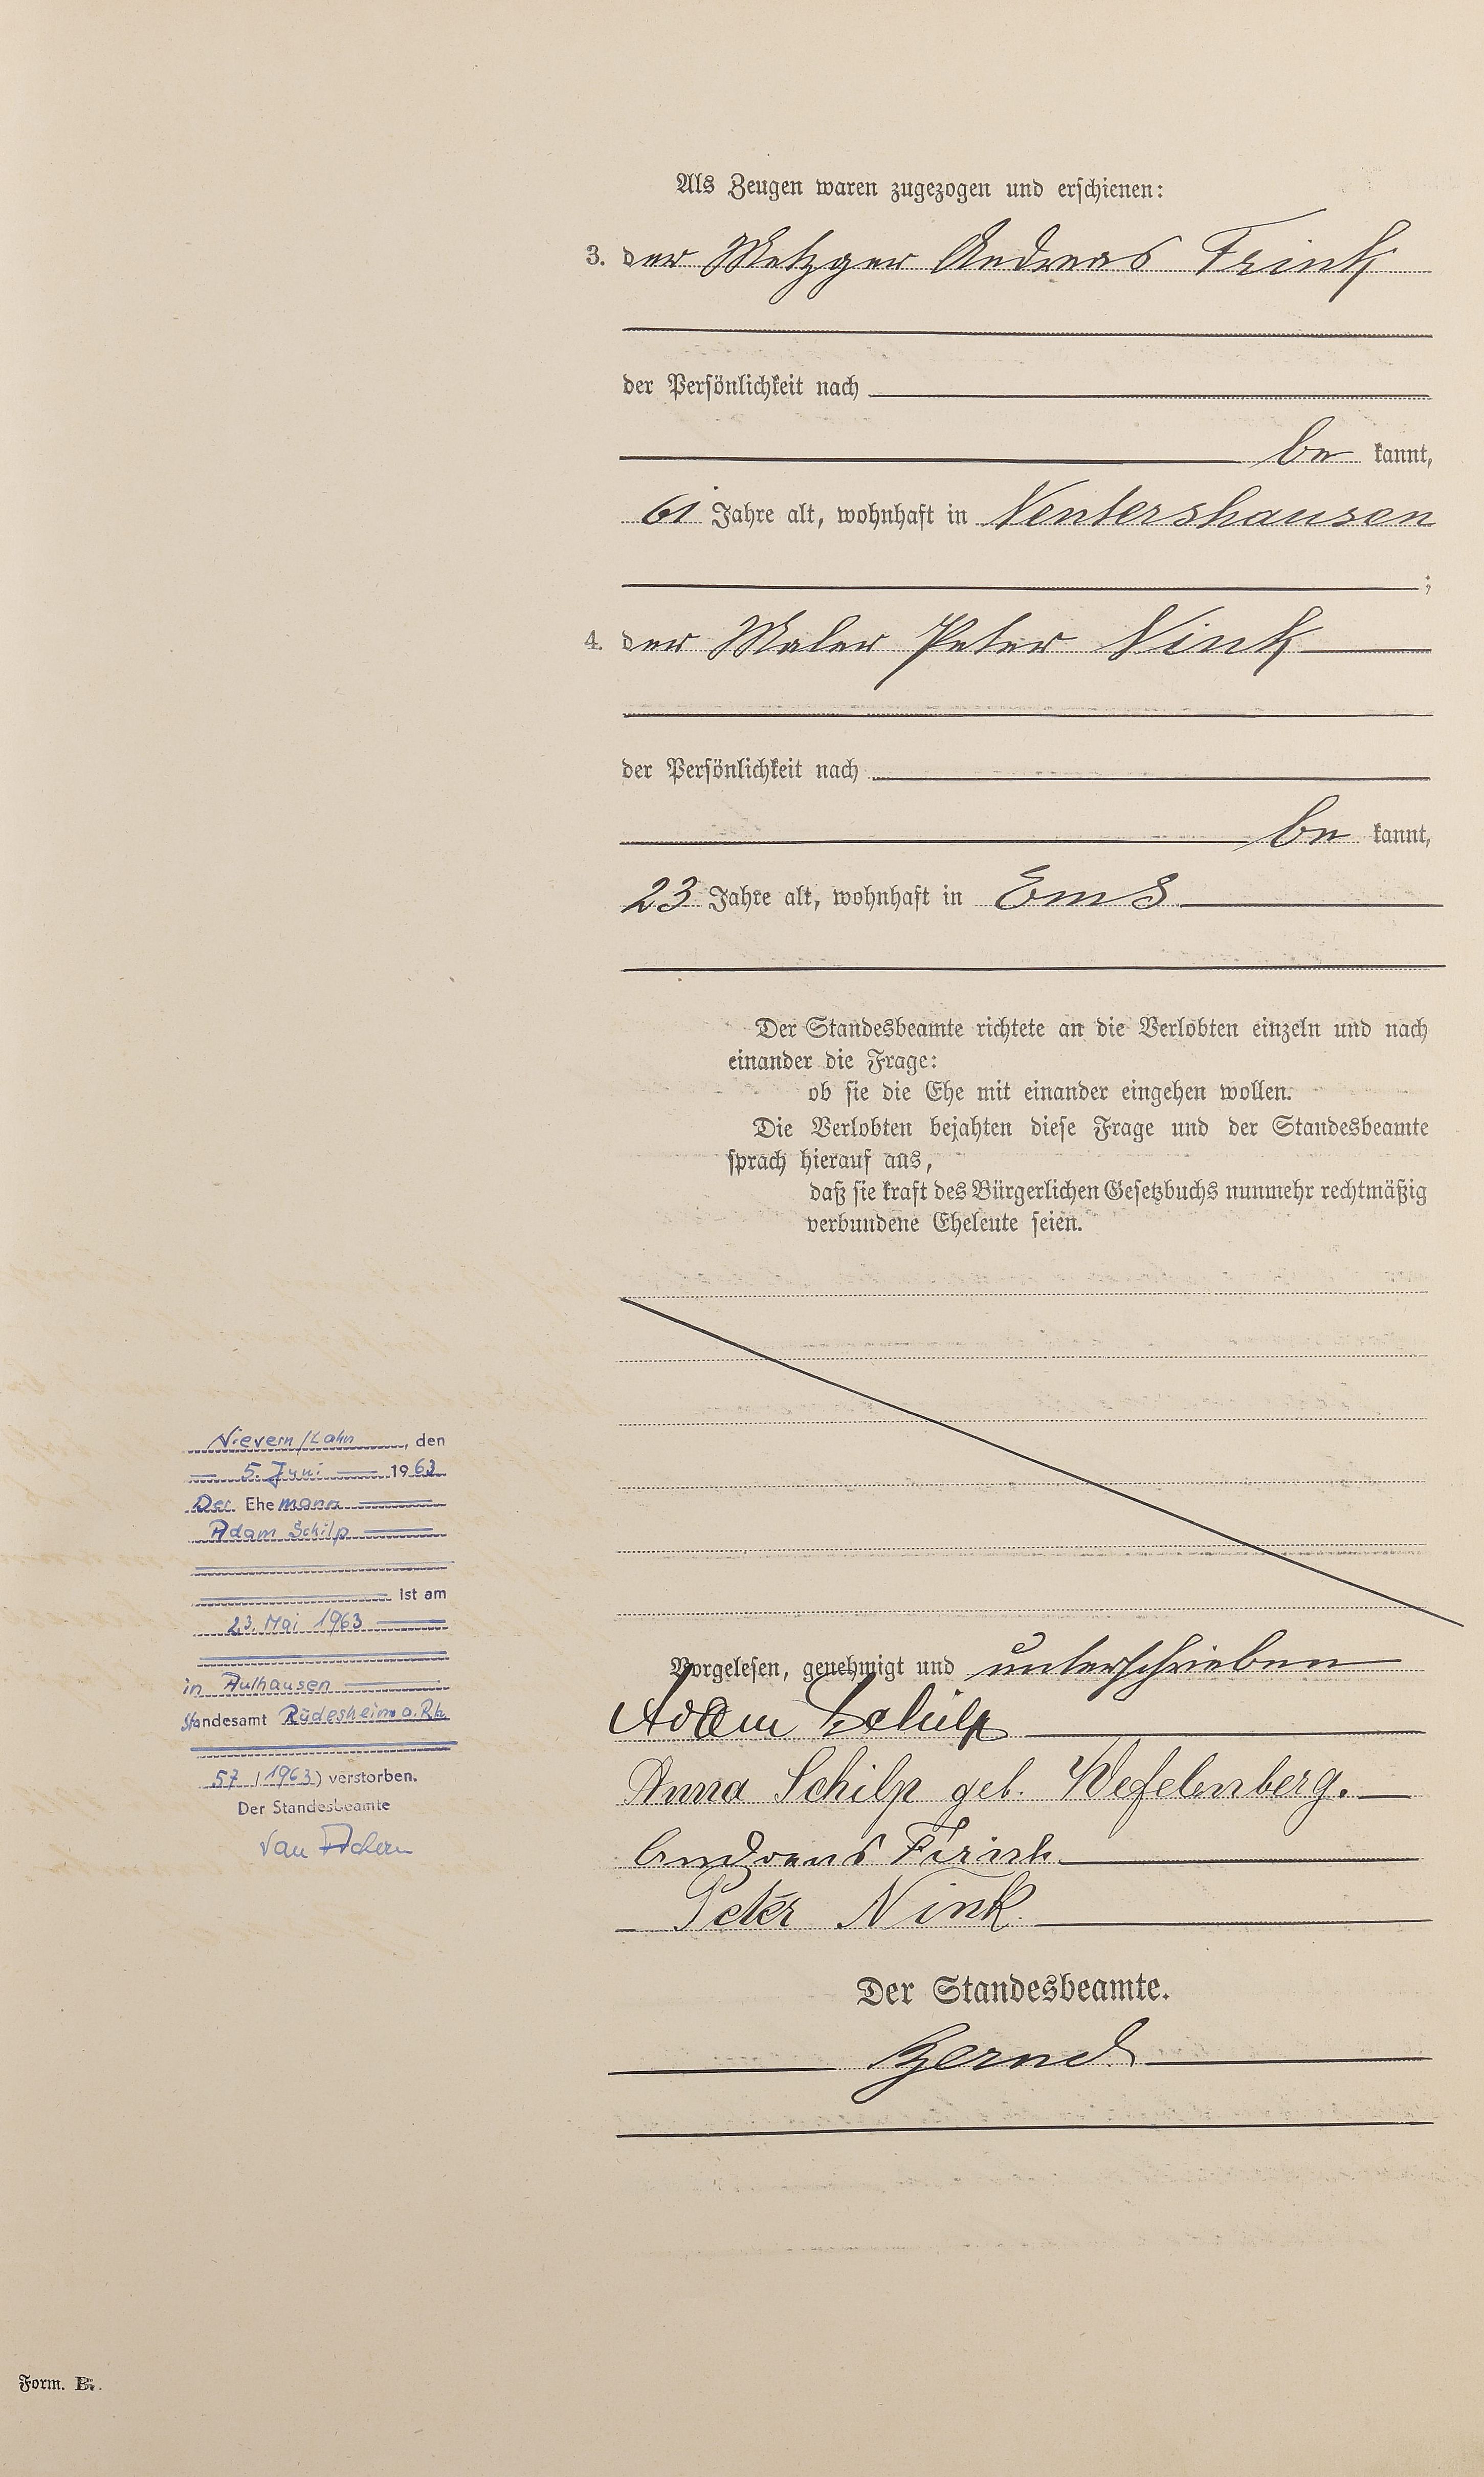 Als Zeugen waren zugezogen und erschienen:
3. der Metzger Andreas Frink
der Persönlichkeit nach
be kannt,
61 Jahre alt, wohnhaft in Nentershausen
;
4. der Maler Peter Nink
der Persönlichkeit nach
be kannt,
23 Jahre alt, wohnhaft in Ems
Der Standesbeamte richtete an die Verlobten einzeln und nach
einander die Frage:
ob sie die Ehe mit einander eingehen wollen.
Die Verlobten bejahten diese Frage und der Standesbeamte
sprach hierauf aus,
daß sie kraft des Bürgerlichen Gesetzbuchs nunmehr rechtmäßig
verbundene Eheleute seien.
Vorgelesen, genehmigt und unterschrieben
Adam Schilp
Anna Schilp geb. Wefelenberg.
Andreas Frink
Peter Nink.
Der Standesbeamte.
Bernd
Nievern/Lahn, den
5. Juni 1963
Der Ehemann
Adam Schilp
ist am
23. Mai 1963
in Aulhausen
Standesamt Rüdesheim a. Rh.
57 (1963) verstorben.
Der Standesbeamte
Form. B.